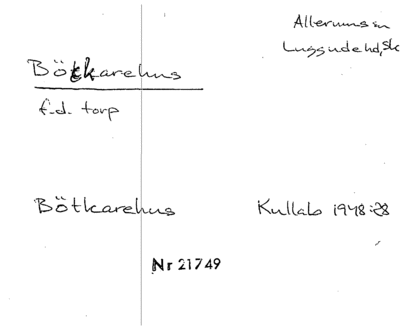 Allerums sn
Luggude hd, Sk
Bötkarehus
f.d. torp
Bötkarehus Kullab 1948:28
Nr 21749